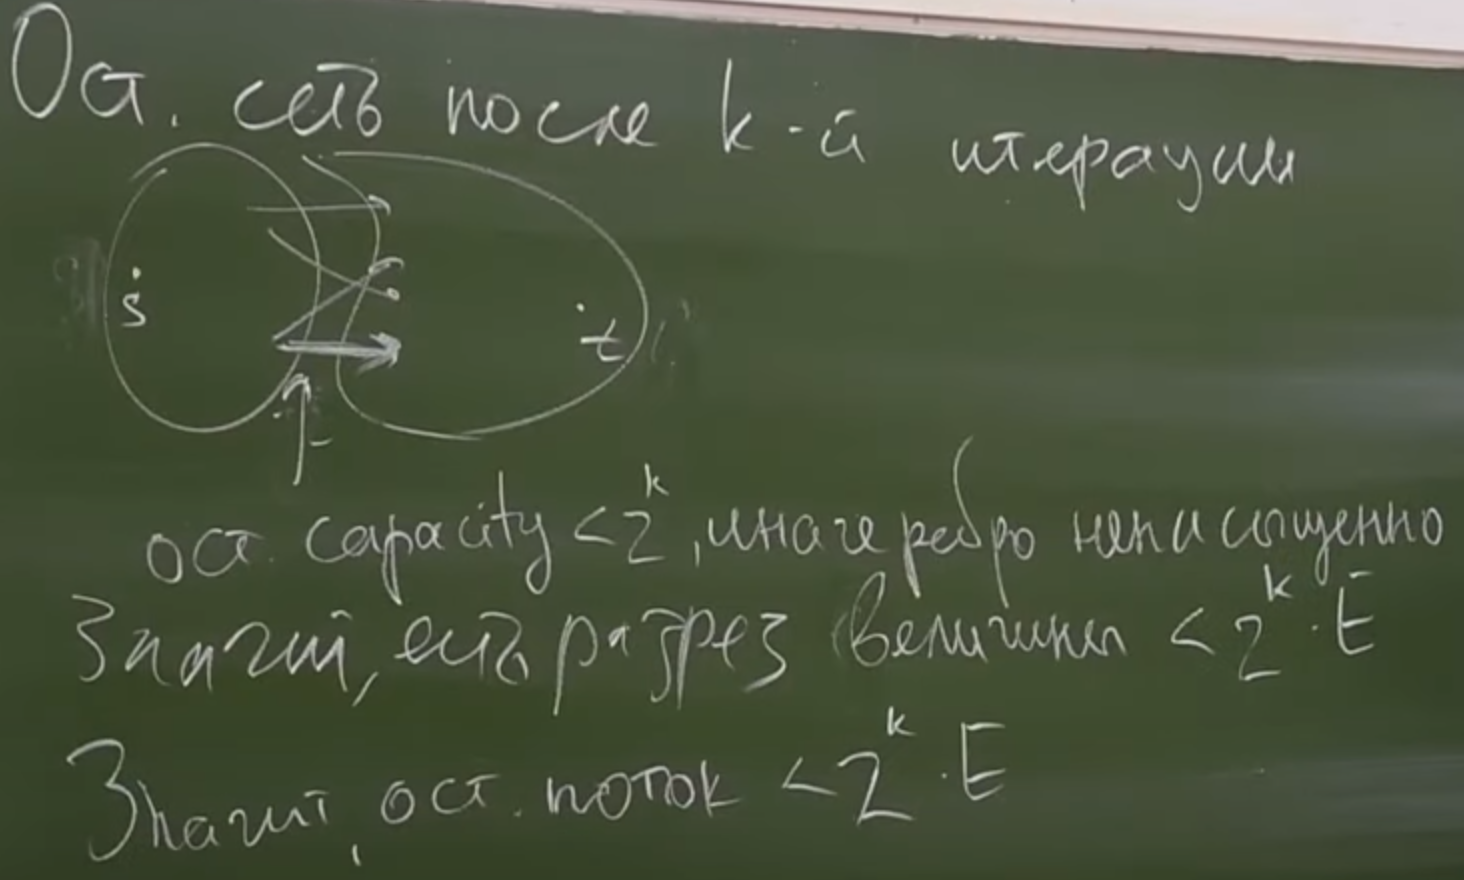 Ост. сеть после k-й итерации
s
t
ост. capacity < 2^k, иначе ребро ненасыщенно
Значит, есть разрез величины < 2^k · E
Значит, ост. поток < 2^k · E